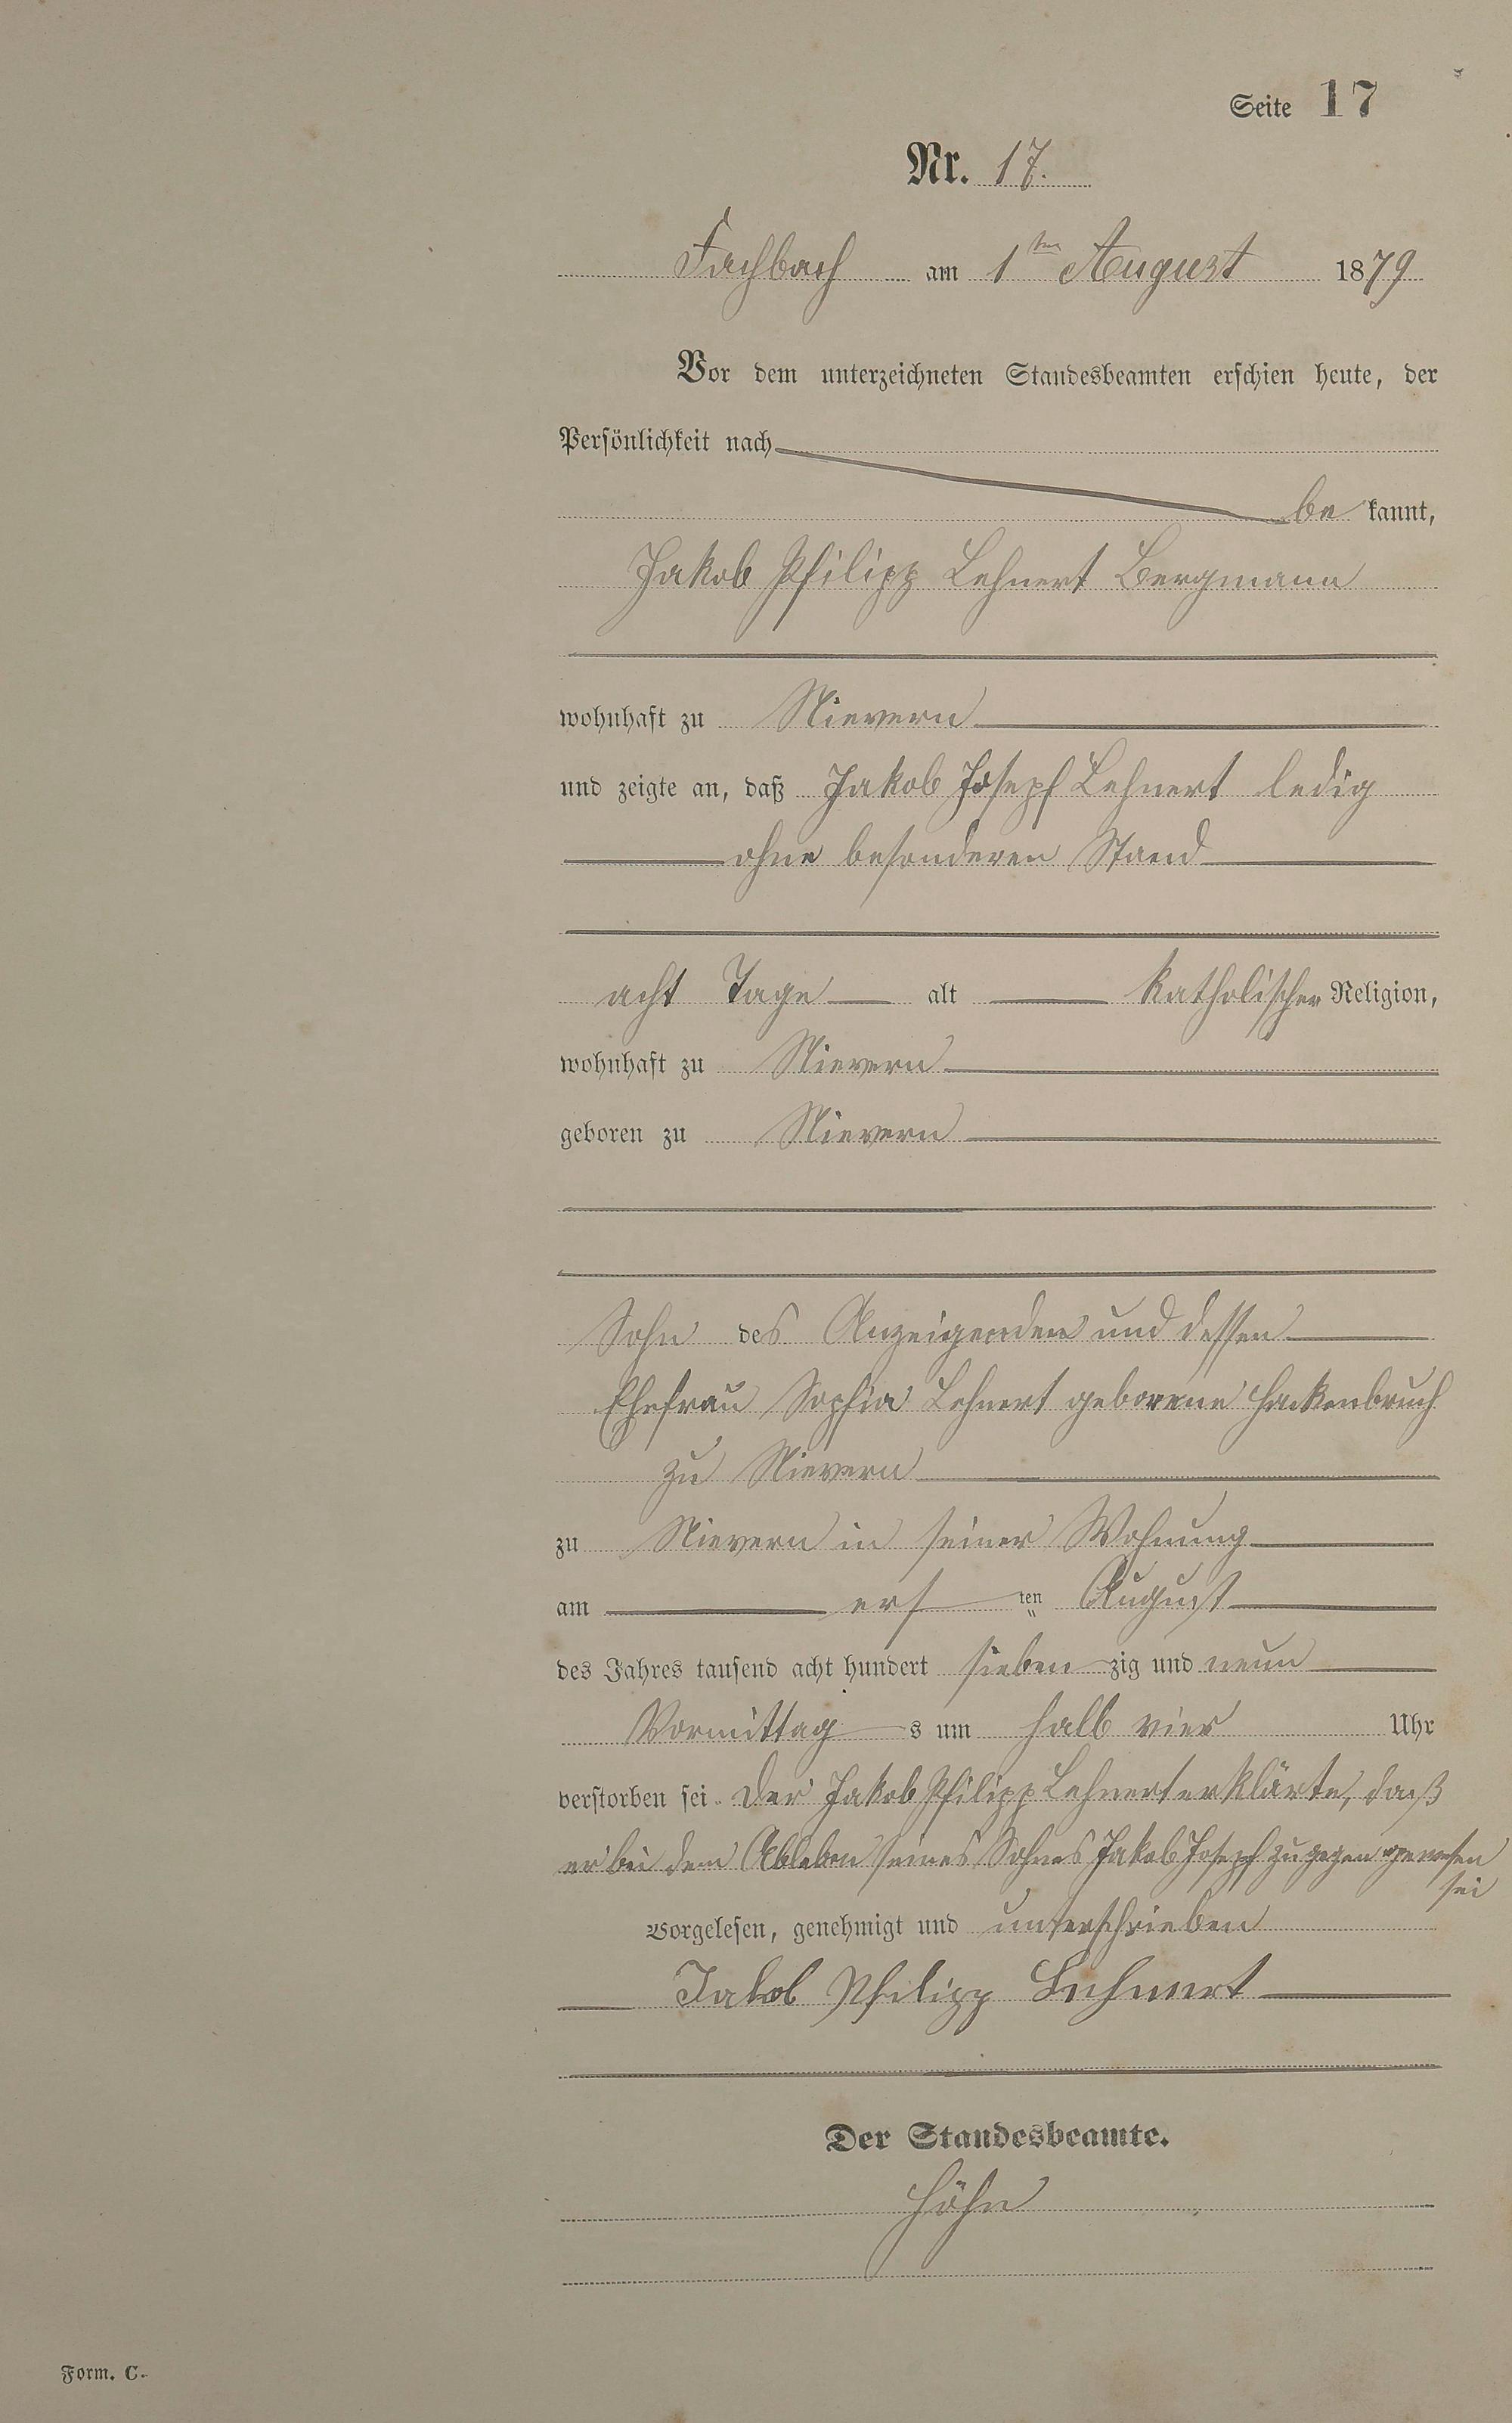 Seite 17
Nr. 17.
Fachbach am 1ten August 1879
Vor dem unterzeichneten Standesbeamten erschien heute, der
Persönlichkeit nach
be kannt,
Jakob Philipp Lehnert Bergmann
wohnhaft zu Nievern
und zeigte an, daß Jakob Joseph Lehnert ledig
ohne besonderen Stand
acht Tage alt katholischer Religion,
wohnhaft zu Nievern
geboren zu Nievern
Sohn des Anzeigenden und dessen
Ehefrau Sophia Lehnert geborene Hackenbruch
zu Nievern
zu Nievern in seiner Wohnung
am ersten August
des Jahres tausend acht hundert siebenzig und neun
Vormittags um halb vier Uhr
verstorben sei. Der Jakob Philipp Lehnert erklärte, daß
er bei dem Ableben seines Sohnes Jakob Joseph zugegen gewesen
sei
Vorgelesen, genehmigt und unterschrieben
Jakob Philipp Lehnert
Der Standesbeamte.
Höhn
Form. C.